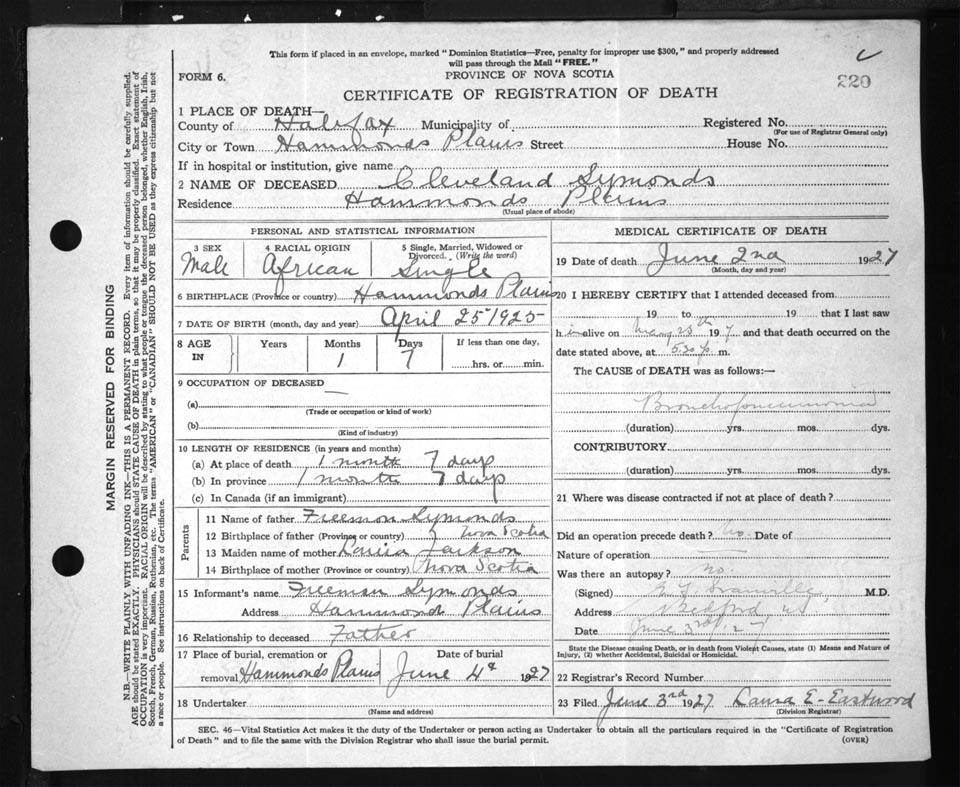 This form if placed in an envelope, marked "Dominion Statistics—Free, penalty for improper use $300," and properly addressed
will pass through the Mail "FREE."
FORM 6.
PROVINCE OF NOVA SCOTIA
220
CERTIFICATE OF REGISTRATION OF DEATH
1 PLACE OF DEATH—
County of Halifax Municipality of Registered No.
(For use of Registrar General only)
City or Town Hammonds Plains Street House No.
If in hospital or institution, give name
2 NAME OF DECEASED Cleveland Symonds
Residence Hammonds Plains
(Usual place of abode)
PERSONAL AND STATISTICAL INFORMATION
3 SEX 4 RACIAL ORIGIN 5 Single, Married, Widowed or Divorced. (Write the word)
Male African Single
6 BIRTHPLACE (Province or country) Hammonds Plains
7 DATE OF BIRTH (month, day and year) April 25 1925
8 AGE IN Years Months Days If less than one day,
1 7 hrs. or min.
9 OCCUPATION OF DECEASED —
(a)
(Trade or occupation or kind of work)
(b)
(Kind of industry)
10 LENGTH OF RESIDENCE (in years and months)
(a) At place of death 1 month 7 days
(b) In province 1 month 7 days
(c) In Canada (if an immigrant)
Parents
11 Name of father Freemon Symonds
12 Birthplace of father (Province or country) Nova Scotia
13 Maiden name of mother Jackson
14 Birthplace of mother (Province or country) Nova Scotia
15 Informant's name Freeman Symonds
Address Hammond Plains
16 Relationship to deceased Father
17 Place of burial, cremation or removal Hammonds Plains Date of burial June 4th 1927
18 Undertaker
(Name and address)
MEDICAL CERTIFICATE OF DEATH
19 Date of death June 2nd 1927
(Month, day and year)
20 I HEREBY CERTIFY that I attended deceased from
19 to 19 that I last saw
h im alive on May 28th 19 7 and that death occurred on
date stated above, at 5.30 p. m.
The CAUSE of DEATH was as follows:—
Bronchopneumonia
(duration) yrs. mos. dys.
CONTRIBUTORY
(duration) yrs. mos. dys.
21 Where was disease contracted if not at place of death?
Did an operation precede death? No. Date of
Nature of operation
Was there an autopsy? No.
(Signed) M.D.
Address Bedford NS
Date June 3rd, 27
State the Disease causing Death, or in death from Violent Causes, state (1) Means and Nature of
Injury, (2) whether Accidental, Suicidal or Homicidal.
22 Registrar's Record Number
23 Filed June 3rd 1927 Laura E. Eastwood
(Division Registrar)
SEC. 46—Vital Statistics Act makes it the duty of the Undertaker or person acting as Undertaker to obtain all the particulars required in the "Certificate of Registration
of Death" and to file the same with the Division Registrar who shall issue the burial permit.
(OVER)
MARGIN RESERVED FOR BINDING
N.B.—WRITE PLAINLY WITH UNFADING INK—THIS IS A PERMANENT RECORD. Every item of information should be carefully supplied.
AGE should be stated EXACTLY. PHYSICIANS should STATE CAUSE OF DEATH in plain terms, so that it may be properly classified. Exact statement of
OCCUPATION is very important. RACIAL ORIGIN will be described by stating to what people or tongue the deceased person belonged, whether English, Irish,
Scotch, French, German, Russian, Ruthenian, etc. The terms "AMERICAN" or "CANADIAN" SHOULD NOT BE USED as they express citizenship but not
a race or people. See instructions on back of Certificate.